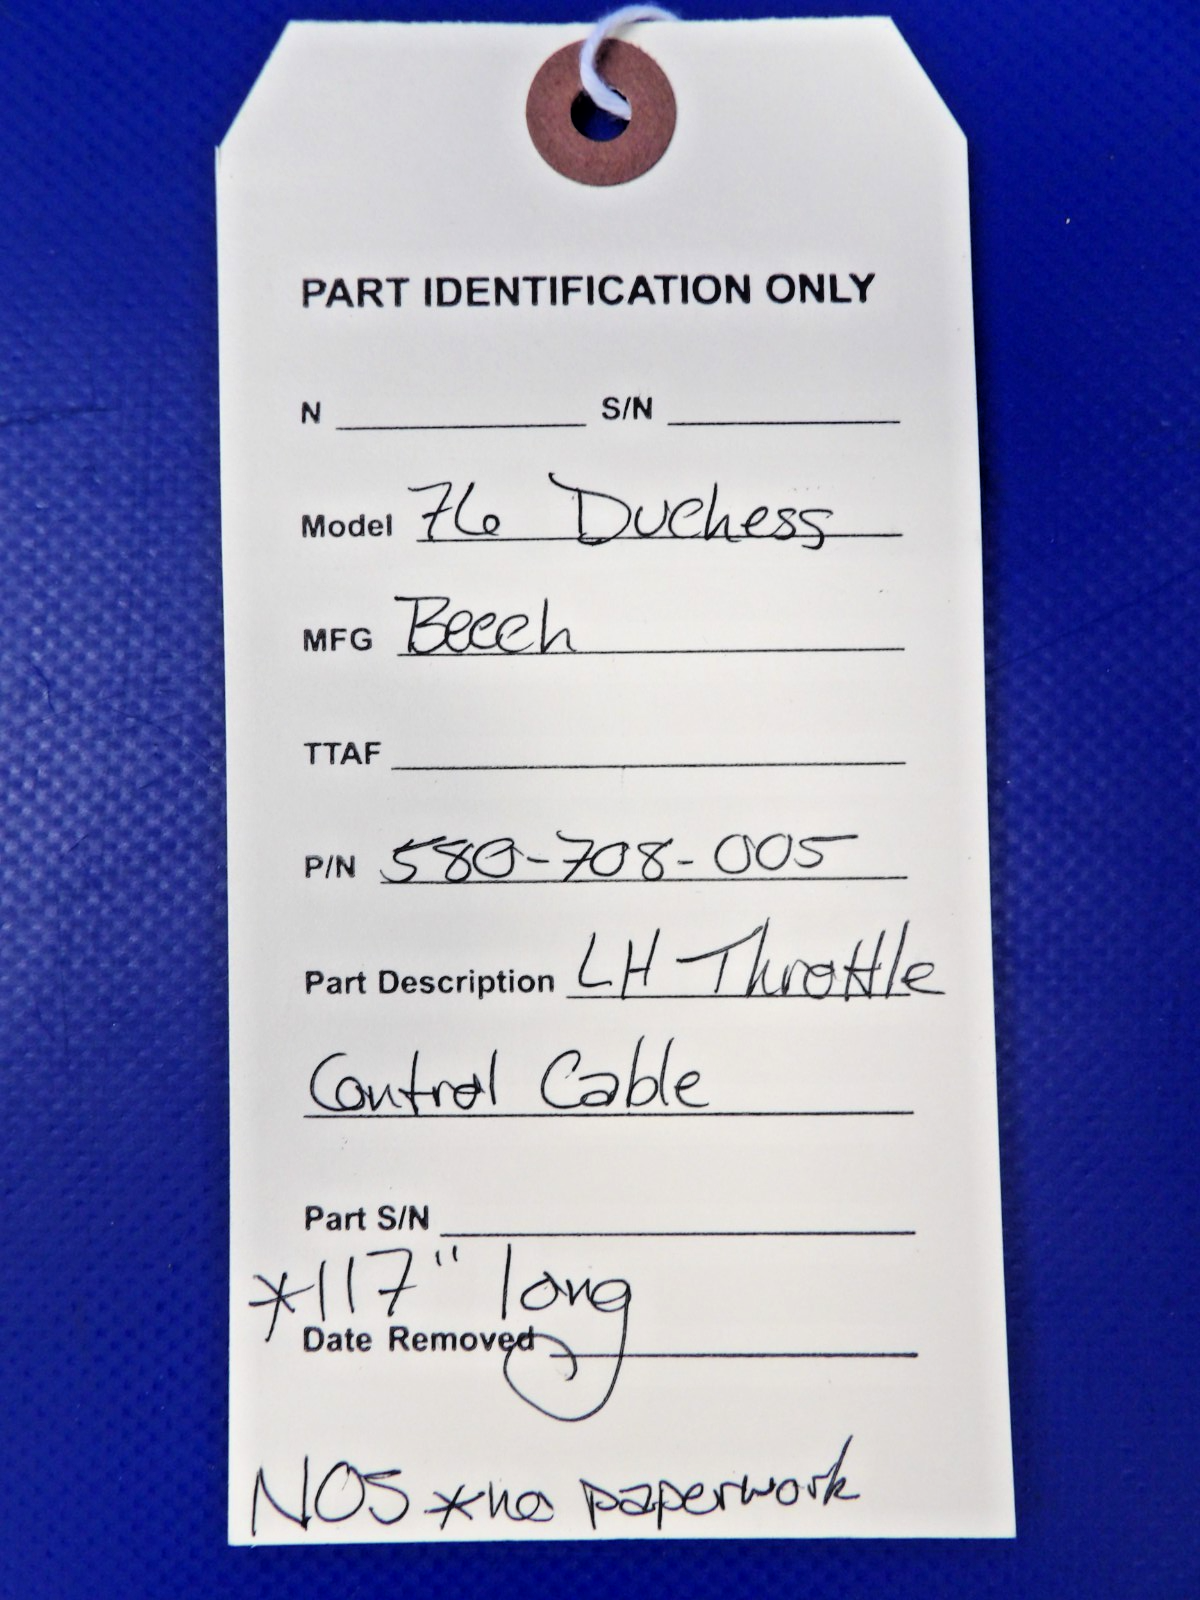 PART IDENTIFICATION ONLY
N S/N
Model 76 Duchess
MFG Beech
TTAF
P/N 580-708-005
Part Description LH Throttle
Control Cable
Part S/N
*117" long
Date Removed
NOS *no paperwork